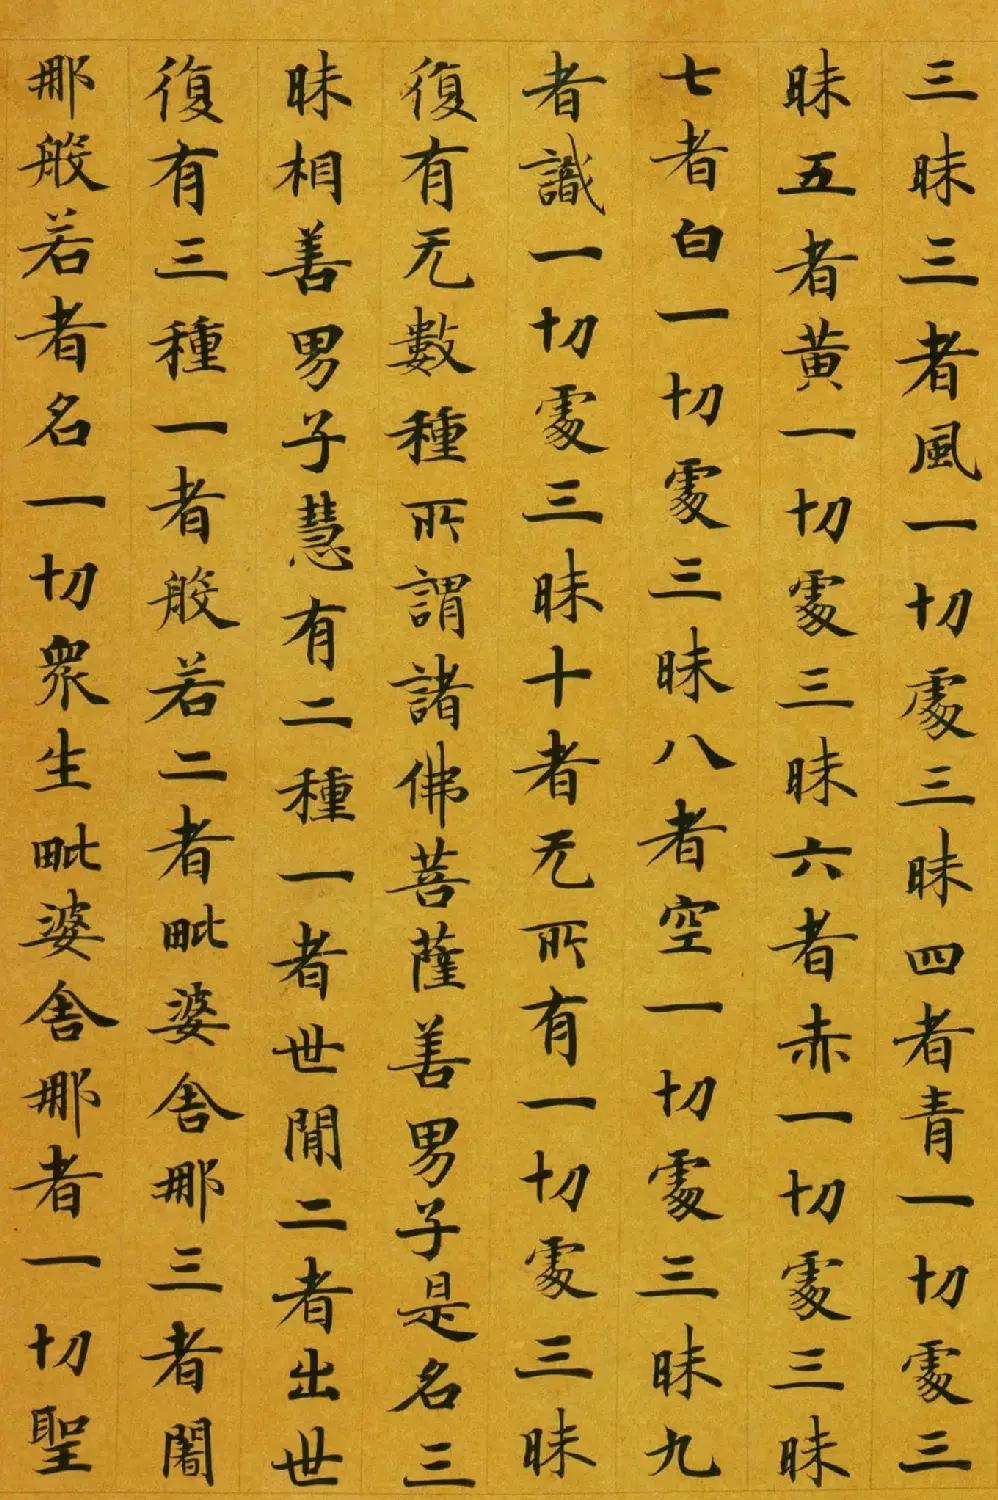 三昧三者風一切處三昧四者青一切處三
昧五者黄一切處三昧六者赤一切處三昧
七者白一切處三昧八者空一切處三昧九
者識一切處三昧十者无所有一切處三昧
復有无數種所謂諸佛菩薩善男子是名三
昧相善男子慧有二種一者世閒二者出世
復有三種一者般若二者毗婆舍那三者闍
那般若者名一切衆生毗婆舍那者一切聖